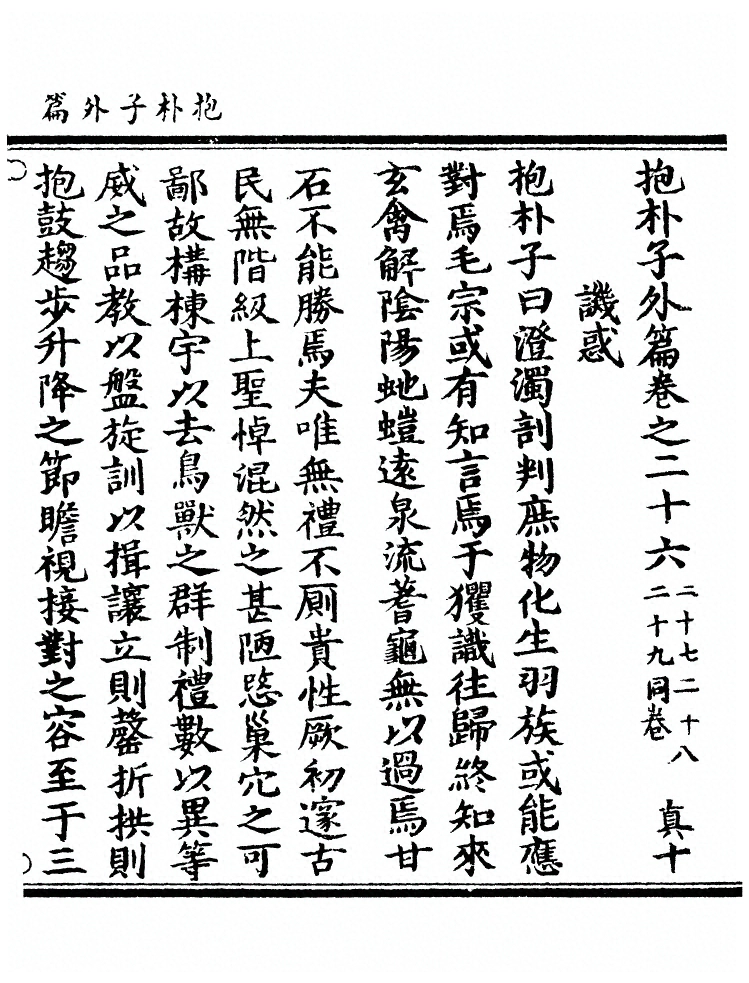 抱朴子外篇
抱朴子外篇卷之二十六 二十七二十八二十九同卷 真十
譏惑
抱朴子曰澄濁剖判庶物化生羽族或能應
對焉毛宗或有知言焉于玃識往歸終知來
玄禽解陰陽虵螘遠泉流蓍龜無以過焉甘
石不能勝焉夫唯無禮不厠貴性厥初邃古
民無階級上聖悼混然之甚陋愍巢穴之可
鄙故構棟宇以去鳥獸之群制禮數以異等
威之品教以盤旋訓以揖讓立則罄折拱則
抱鼓趨步升降之節瞻視接對之容至于三